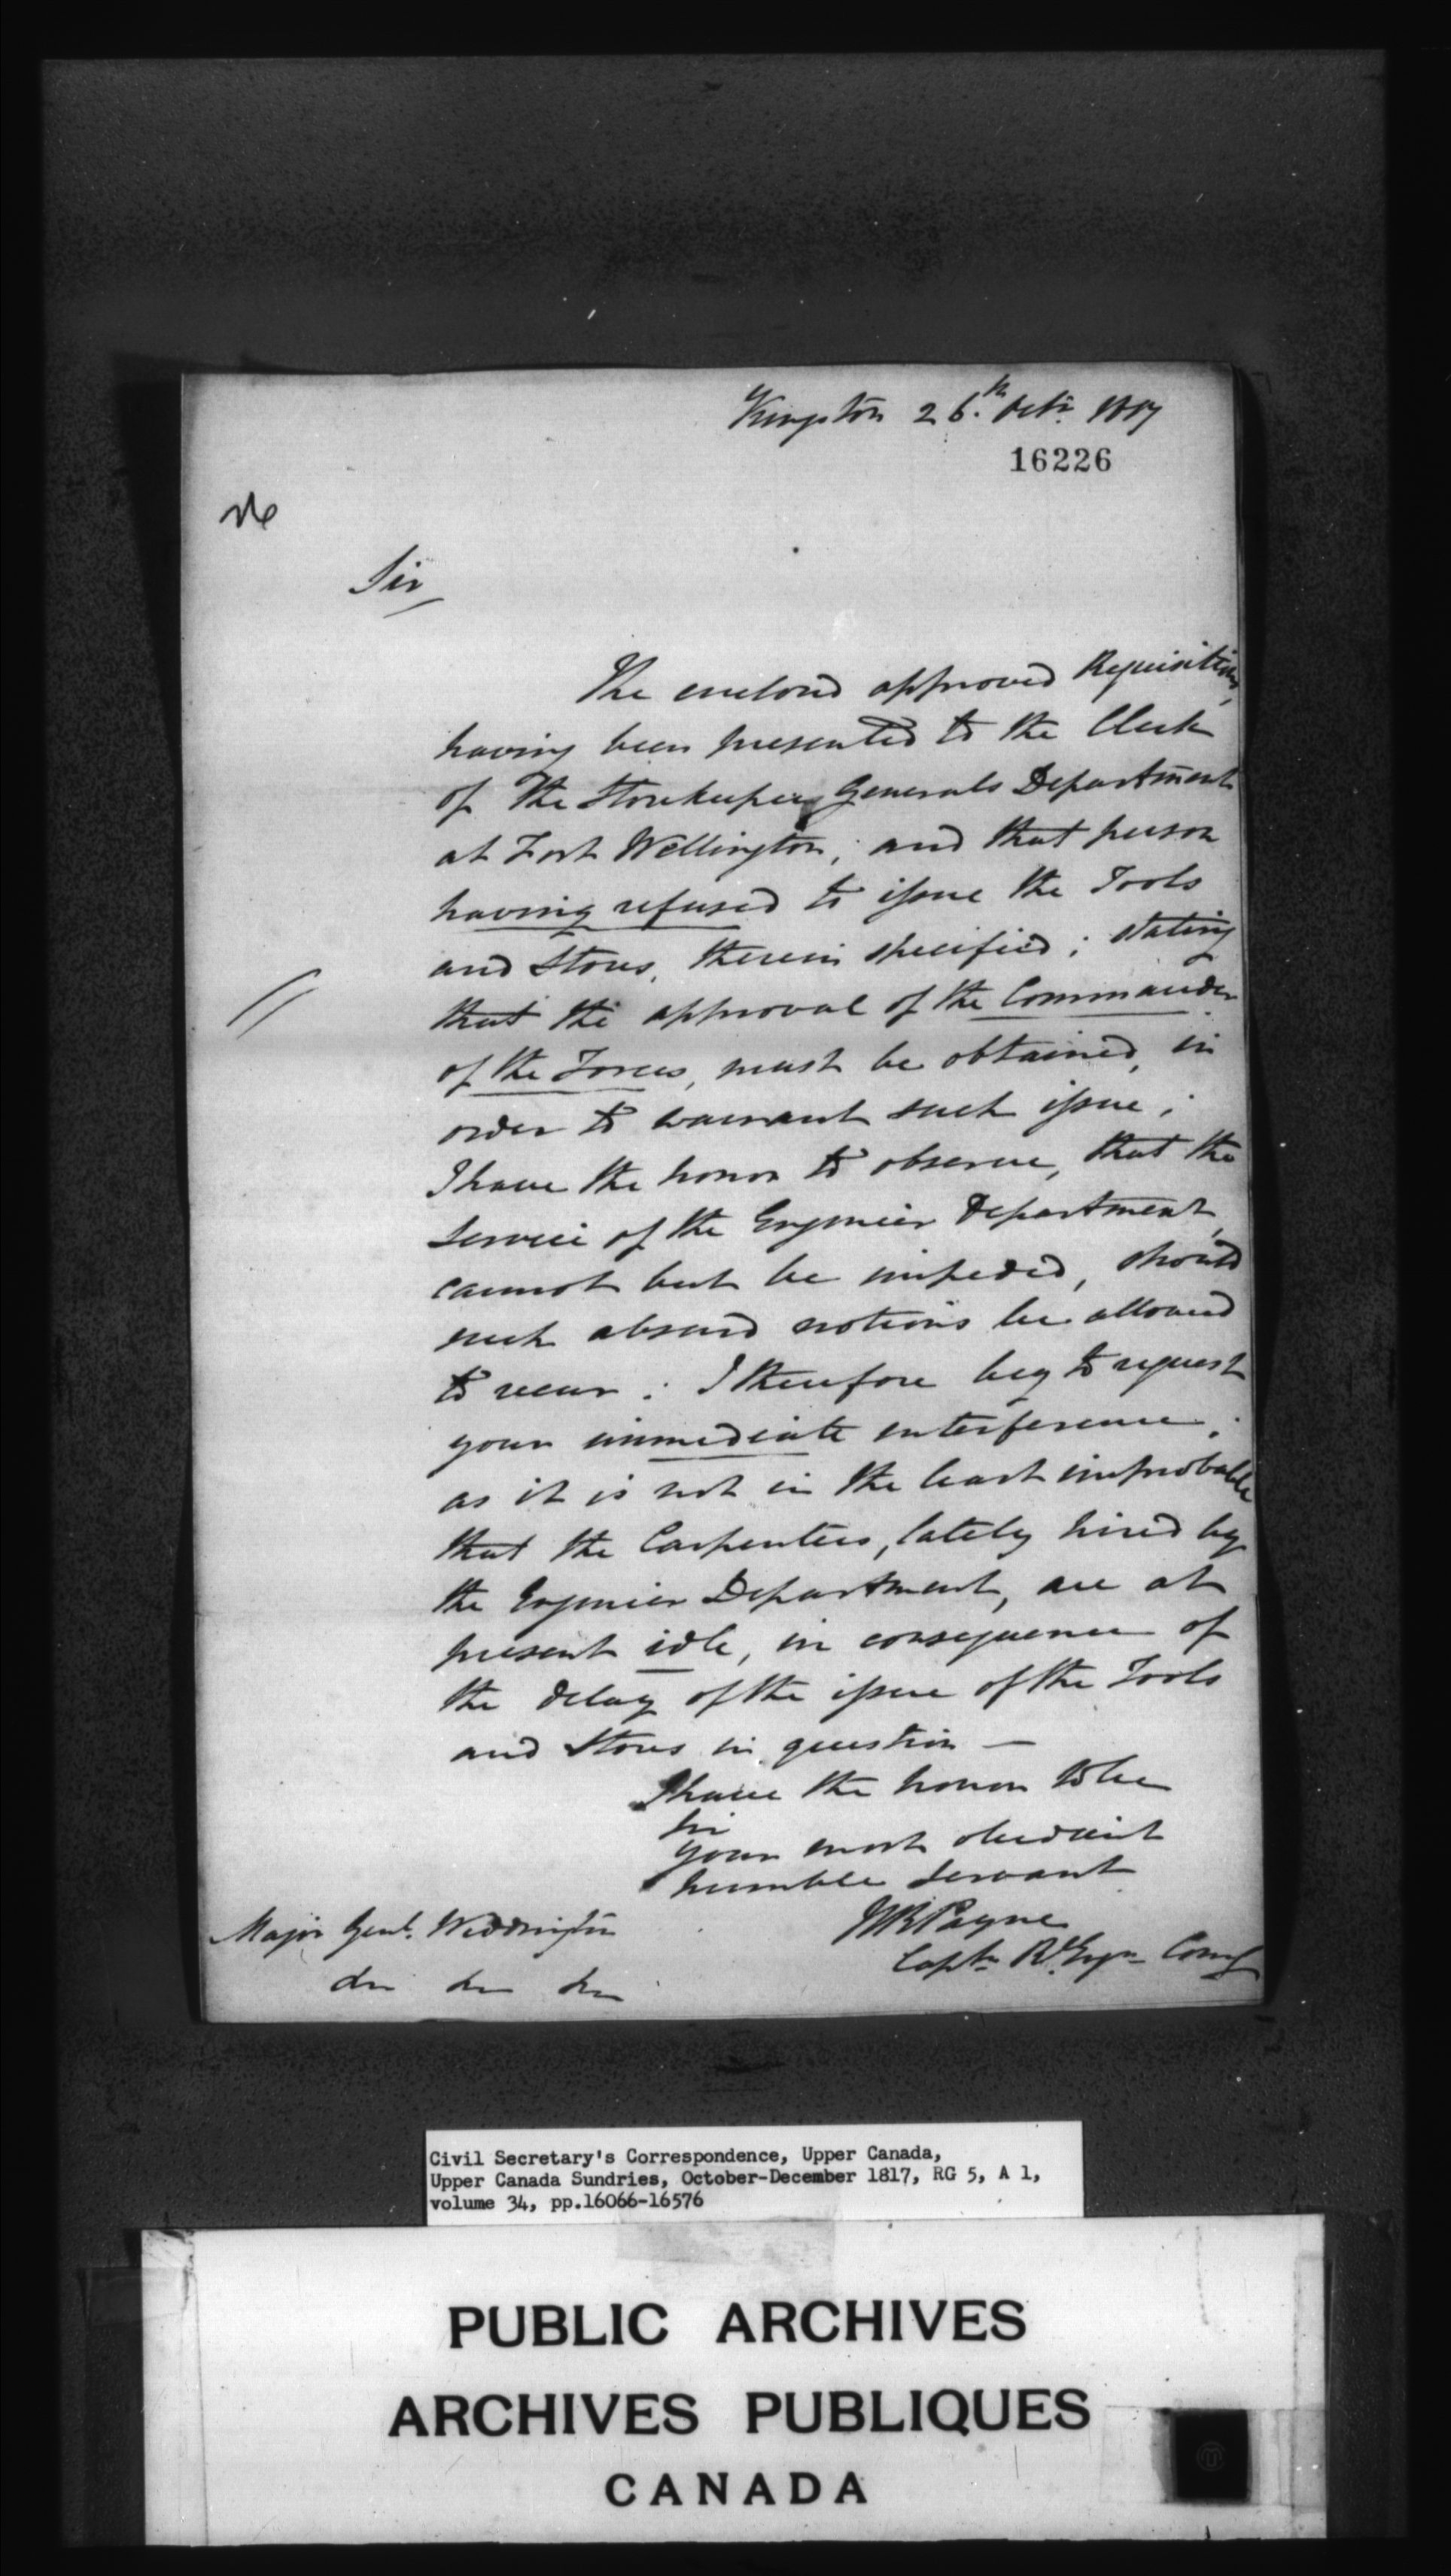 Kingston 26th. Octr. 1817
16226
Sir
The enclosed approved Requisitions,
having been presented to the Clerk
of the Storekeeper Generals Department
at Fort Wellington; and that person
having refused to issue the Tools
and Stores, therein specified; stating
that the approval of the Commander
of the Forces, must be obtained, in
order to warrant such issue;
I have the honor to observe, that the
Service of the Engineer Department,
cannot but be impeded, should
such absurd notions be allowed
to recur: I therefore beg to request
your immediate interference;
as it is not in the least improbable
that the Carpenters, lately hired by
the Engineer Department, are at
present idle, in consequence of
the delay of the issue of the Tools
and Stores in question —
I have the honor to be
Sir
your most obedient
humble Servant
Payne
Captn Rl. Engn Comg
Major Genl. Widdrington
Civil Secretary's Correspondence, Upper Canada,
Upper Canada Sundries, October-December 1817, RG 5, A 1,
volume 34, pp.16066-16576
PUBLIC ARCHIVES
ARCHIVES PUBLIQUES
CANADA